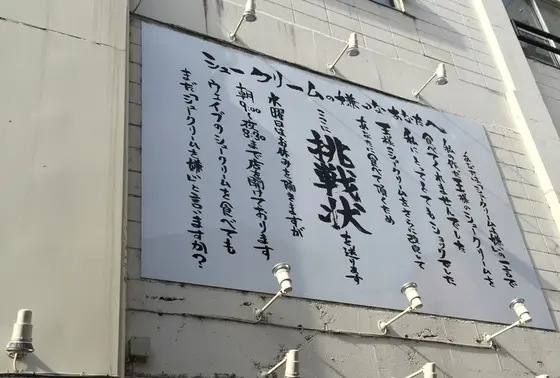 シュークリームの嫌いなあなたへ
シュークリームは嫌いの一言で
王様のシュークリームを
食べてくれませんでした
私にとってとてもショックでした
王様のシュークリームをさらに改良して
あなたに食べて頂くため
ここに挑戦状を送ります
水曜日はお休みを頂きますが
朝9:00〜夜8:30まで店を開けております
ウェイブのシュークリームを食べても
まだ「シュークリームは嫌い」と言いますか?